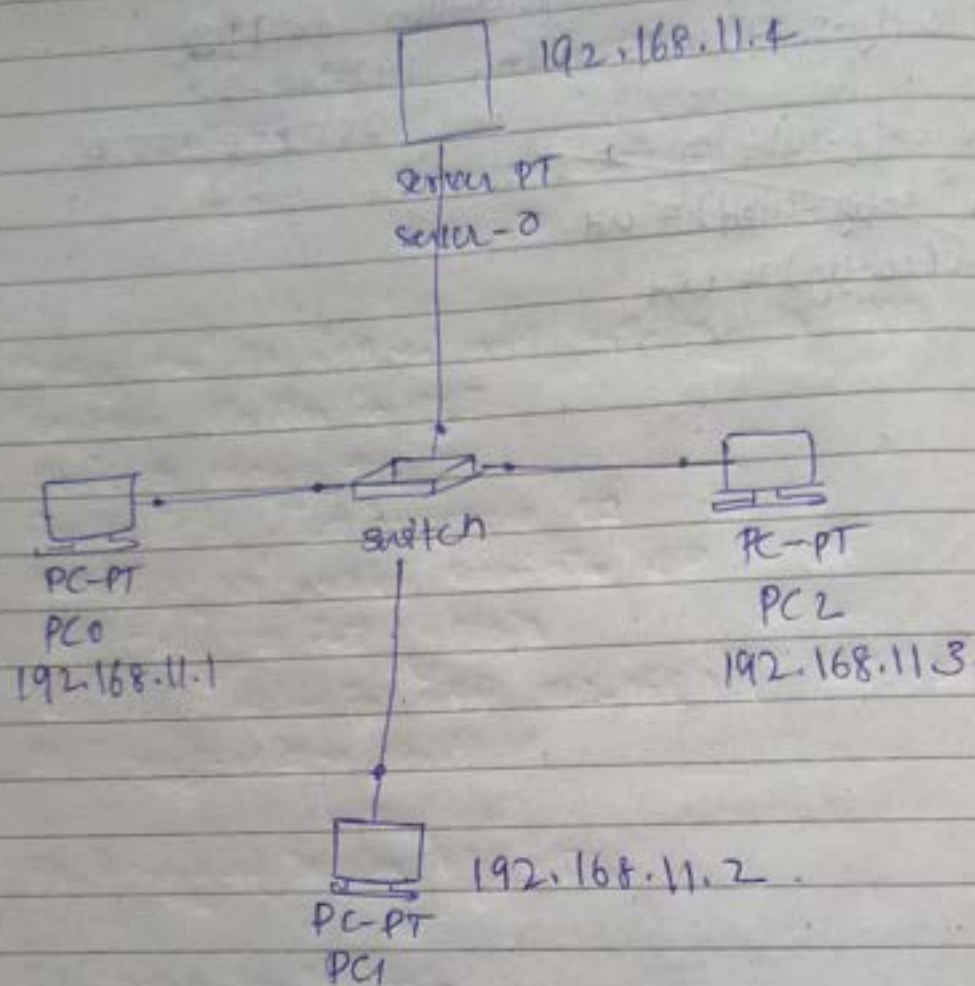 192.168.11.4
server PT
server-0
switch
PC-PT
PC0
192.168.11.1
PC-PT
PC2
192.168.11.3
192.168.11.2.
PC-PT
PC1